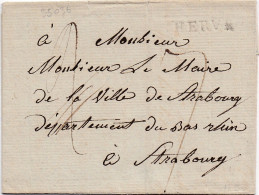 HERVE
à Monsieur
Monsieur Le Maire
de la Ville de Strasbourg
département du Bas rhin
à Strasbourg